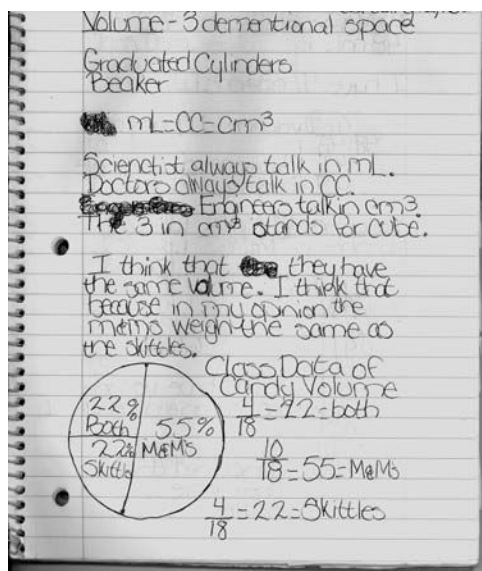 Volume - 3 dementional space
Graduated Cylinders
Beaker
mL=CC=Cm³
Scienctist always talk in mL.
Doctors always talk in CC.
Engineers talk in cm³.
The 3 in cm³ stands for cube.
I think that they have
the same volume. I think that
because in my opinion the
m&ms weigh the same as
the skittles.
Class Data of
Candy Volume
22%
Both
55%
M&M's
22%
Skittle
4/18=22=both
10/18=55=M&M's
4/18=22=Skittles